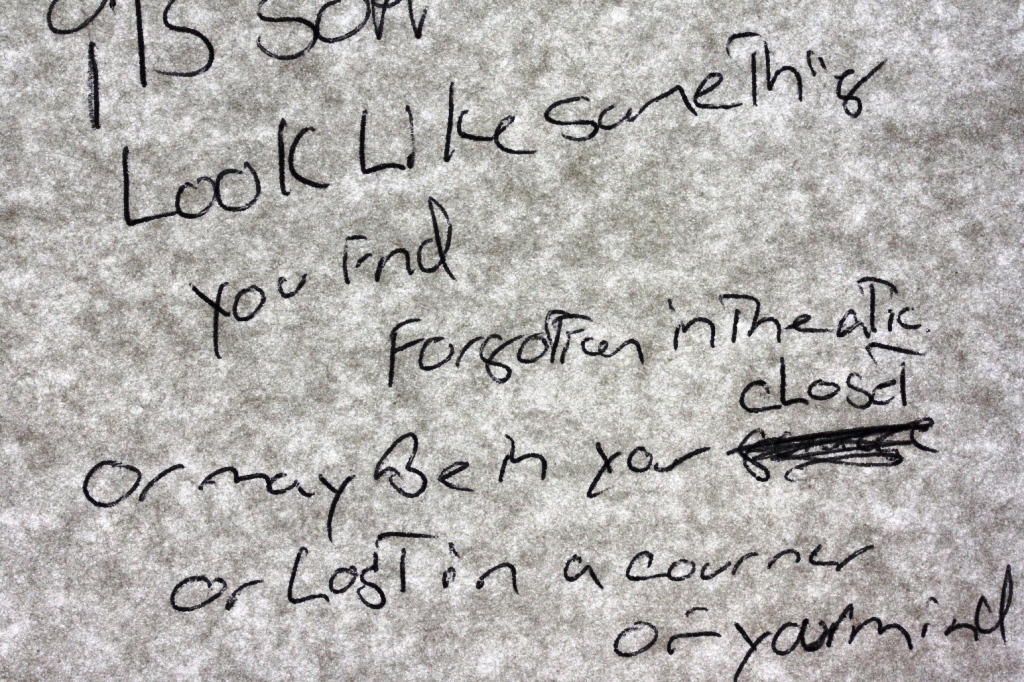 Look Like something
you find
Forgotten in the atic
closet
or maybe in your
or Lost in a courner
of your mind